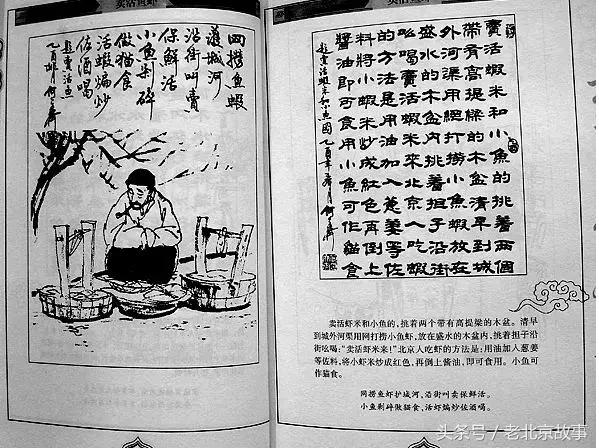 卖活鱼虾
网捞鱼蝦
護城河
沿街叫賣
保鮮活
小鱼剁碎
做猫食
活蝦煸炒
佐酒喝
題賣活鱼
乙酉
卖活鱼虾
賣活蝦米和小魚的挑着兩個
帶有高提樑的木盆清早到城
外河渠用網打撈小魚蝦放在
盛水的木盆内挑着担子沿街
吆喝賣活蝦米來北京人吃蝦
的方法是用油加入蔥姜等佐
料將小蝦米炒成紅色再倒上
醬油即可食用小魚可作貓食
題賣活蝦米和小魚圖 乙酉年
卖活虾米和小鱼的,挑着两个带有高提梁的木盆。清早
到城外河渠用网打捞小鱼虾,放在盛水的木盆内,挑着担子沿
街吆喝:“卖活虾米来!”北京人吃虾的方法是:用油加入葱姜
等佐料,将小虾米炒成红色,再倒上酱油,即可食用。小鱼可
作猫食。
网捞鱼虾护城河,沿街叫卖保鲜活。
小鱼剁碎做猫食,活虾煸炒佐酒喝。
头条号／老北京故事